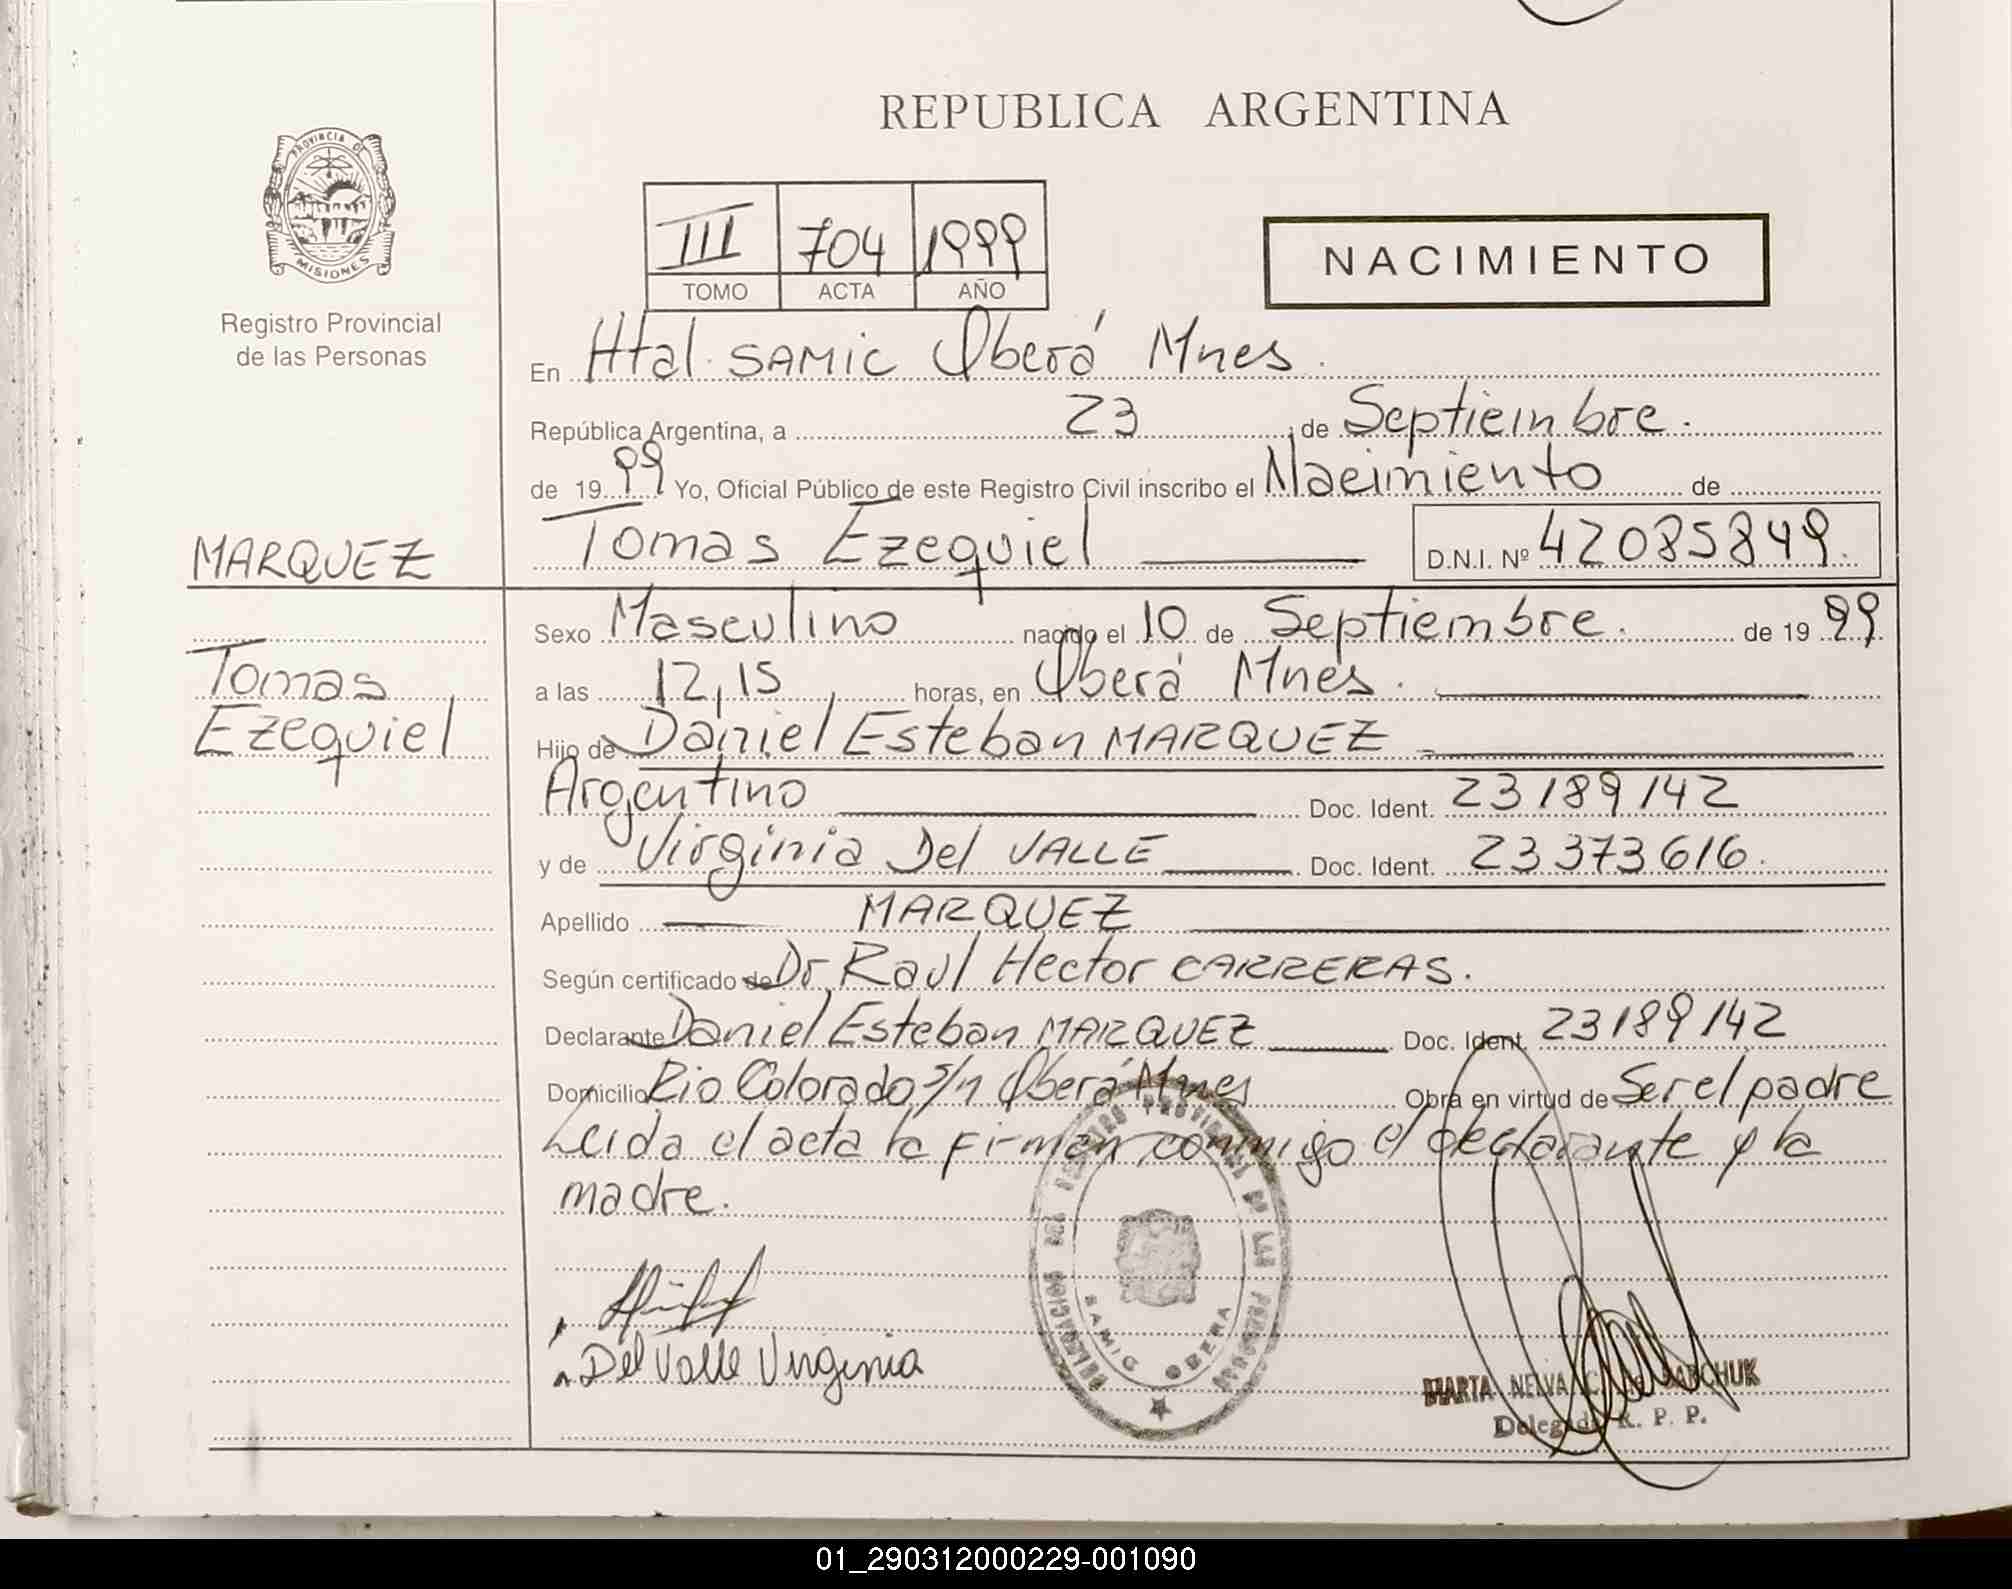 REPUBLICA ARGENTINA
PROVINCIA DE
MISIONES
Registro Provincial
de las Personas
III 704 1999
TOMO ACTA AÑO
NACIMIENTO
En Htal. SAMIC Oberá Mnes.
República Argentina, a 23 de Septiembre.
de 1999 Yo, Oficial Público de este Registro Civil inscribo el Nacimiento de
Tomas Ezequiel D.N.I. Nº 42085849.
MARQUEZ
Tomas
Ezequiel
Sexo Masculino nacido el 10 de Septiembre. de 1999
a las 12,15 horas, en Oberá Mnes.
Hijo de Daniel Esteban MARQUEZ
Argentino Doc. Ident. 23189142
y de Virginia Del VALLE Doc. Ident. 23373616.
Apellido MARQUEZ
Según certificado de Dr Raul Hector CARRERAS.
Declarante Daniel Esteban MARQUEZ Doc. Ident. 23189142
Domicilio Rio Colorado s/n Oberá Mnes Obra en virtud de Ser el padre
Leida el acta la firman conmigo el declarante y la
madre.
Del Valle Virginia
DELEGACION DEL REGISTRO PROVINCIAL DE LAS PERSONAS
SAMIC OBERA
MARTA NELVA C.
Delegada R. P. P.
01_290312000229-001090